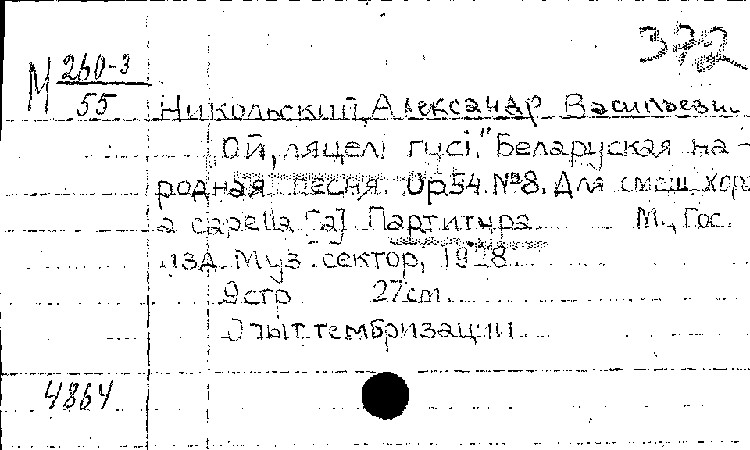 372
М 260-3
55
Никольский, Александр Васильевич
„Ой, ляцелі гусі." Беларуская на-
родная песня. Op.54. №8. Для смеш. хора
a capella [a] Партитура М., Гос.
изд. Муз. сектор, 1928
9 стр 27 см.
Опыт тембризации
4864